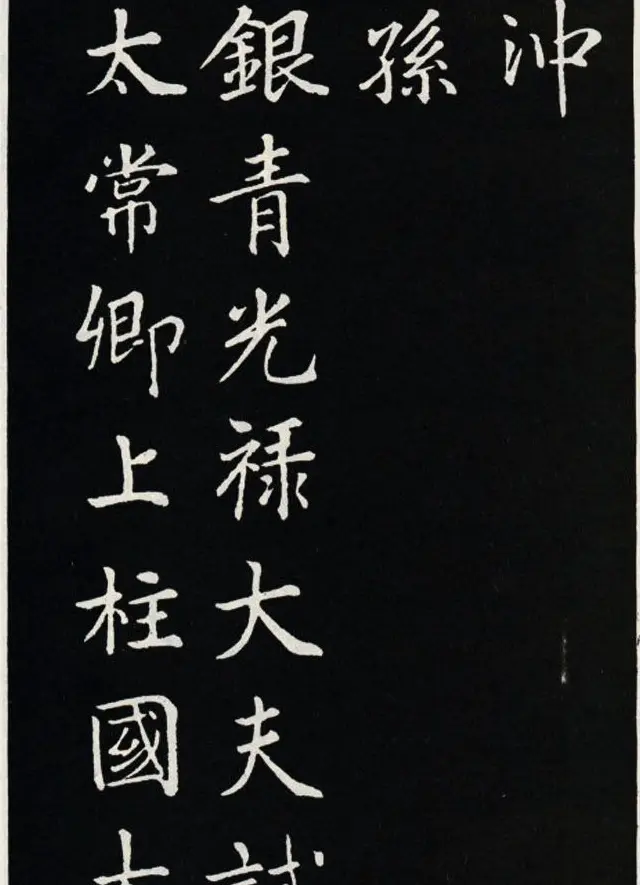 沖
孫
銀青光禄大夫試
太常卿上柱國